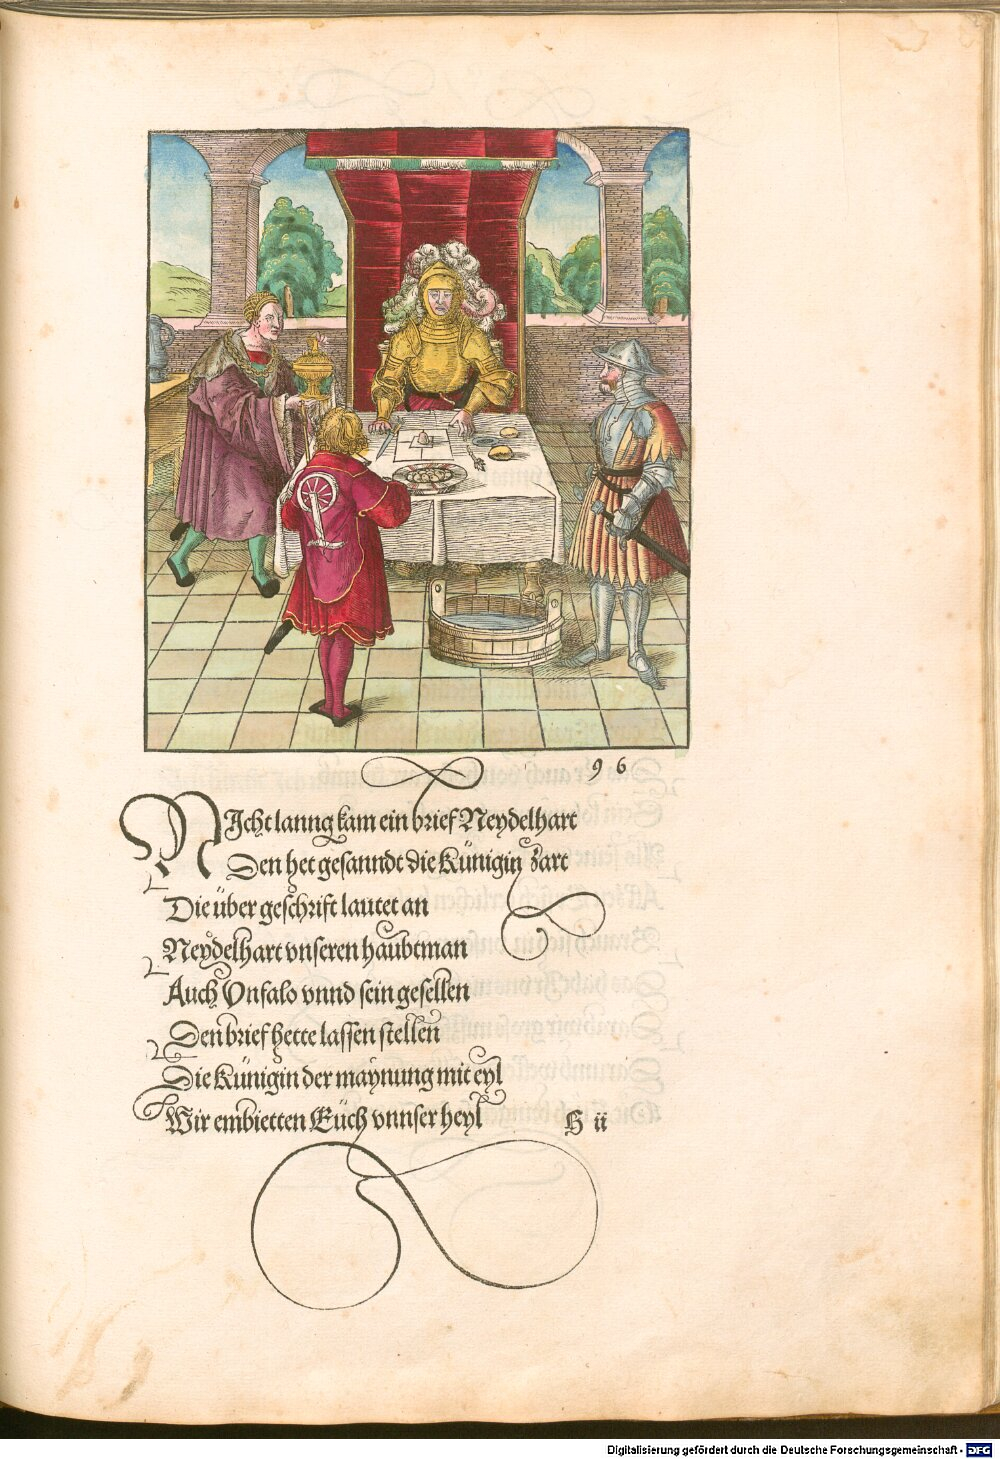 96
NIcht lanng kam ein brief Neydelhart
Den het gesanndt die Künigin zart
Die über geschrifft lautet an
Neydelhart vnseren haubtman
Auch Vnfalo vnnd sein gesellen
Den brief hette lassen stellen
Die Künigin der maynung mit eyl
Wir embietten Eüch vnnser heyl
H ii
Digitalisierung gefördert durch die Deutsche Forschungsgemeinschaft - DFG